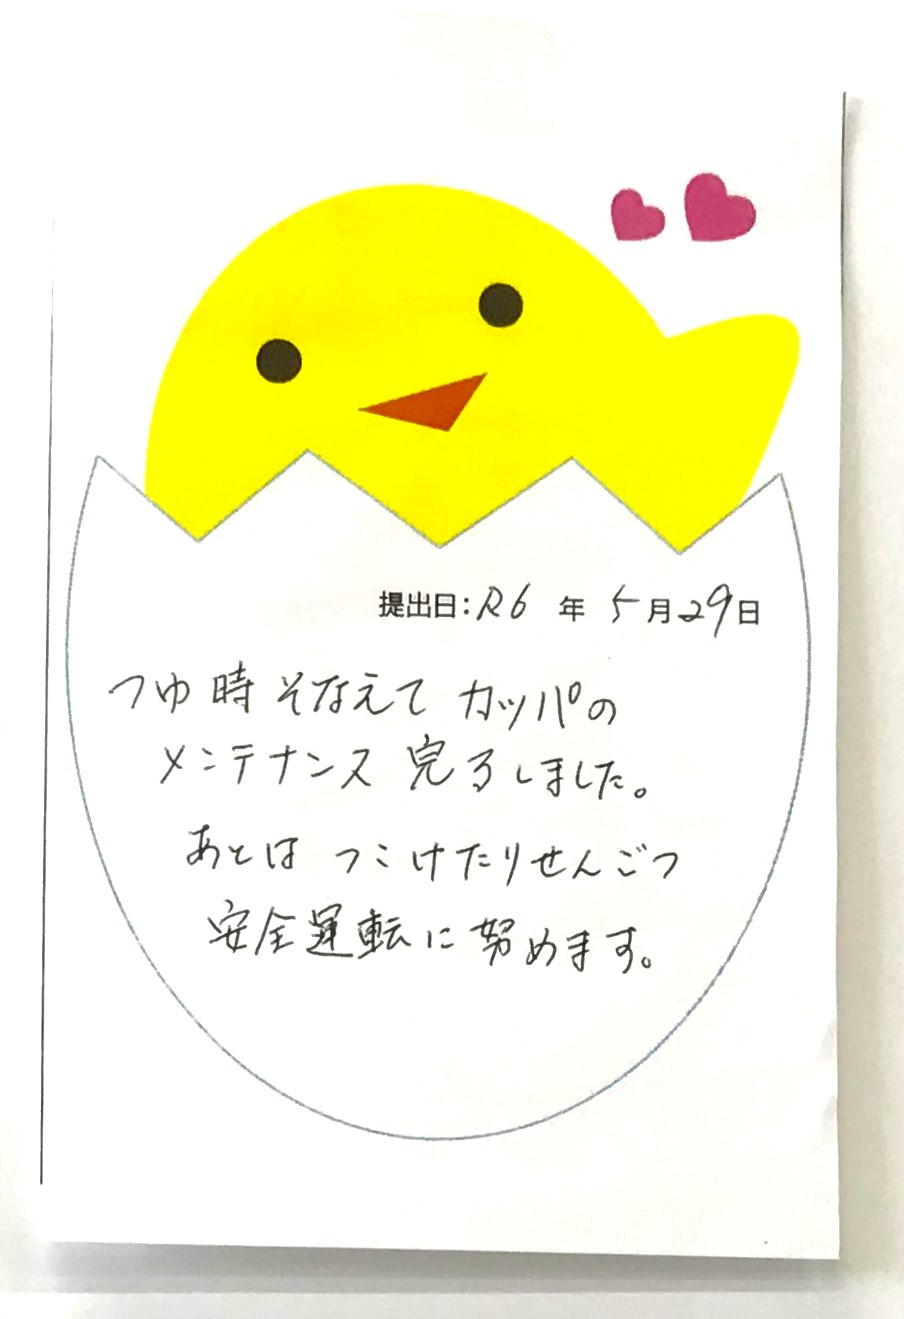 提出日：R6 年 5月29日
つゆ時そなえて カッパの
メンテナンス 完了しました。
あとは つこけたりせんごつ
安全運転に努めます。